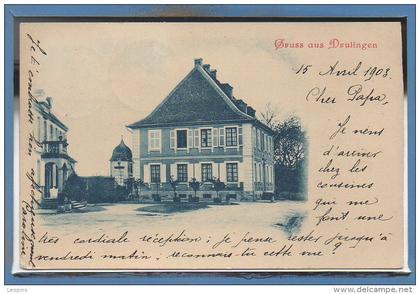 Gruss aus Drulingen
15 Avril 1903.
Cher Papa,
Je viens
d'arriver
chez les
cousines
qui me
font une
très cordiale réception ; je pense rester jusqu'à
vendredi matin ; reconnais tu cette vue ?
Je t'embrasse bien affectueusement
www.delcampe.net